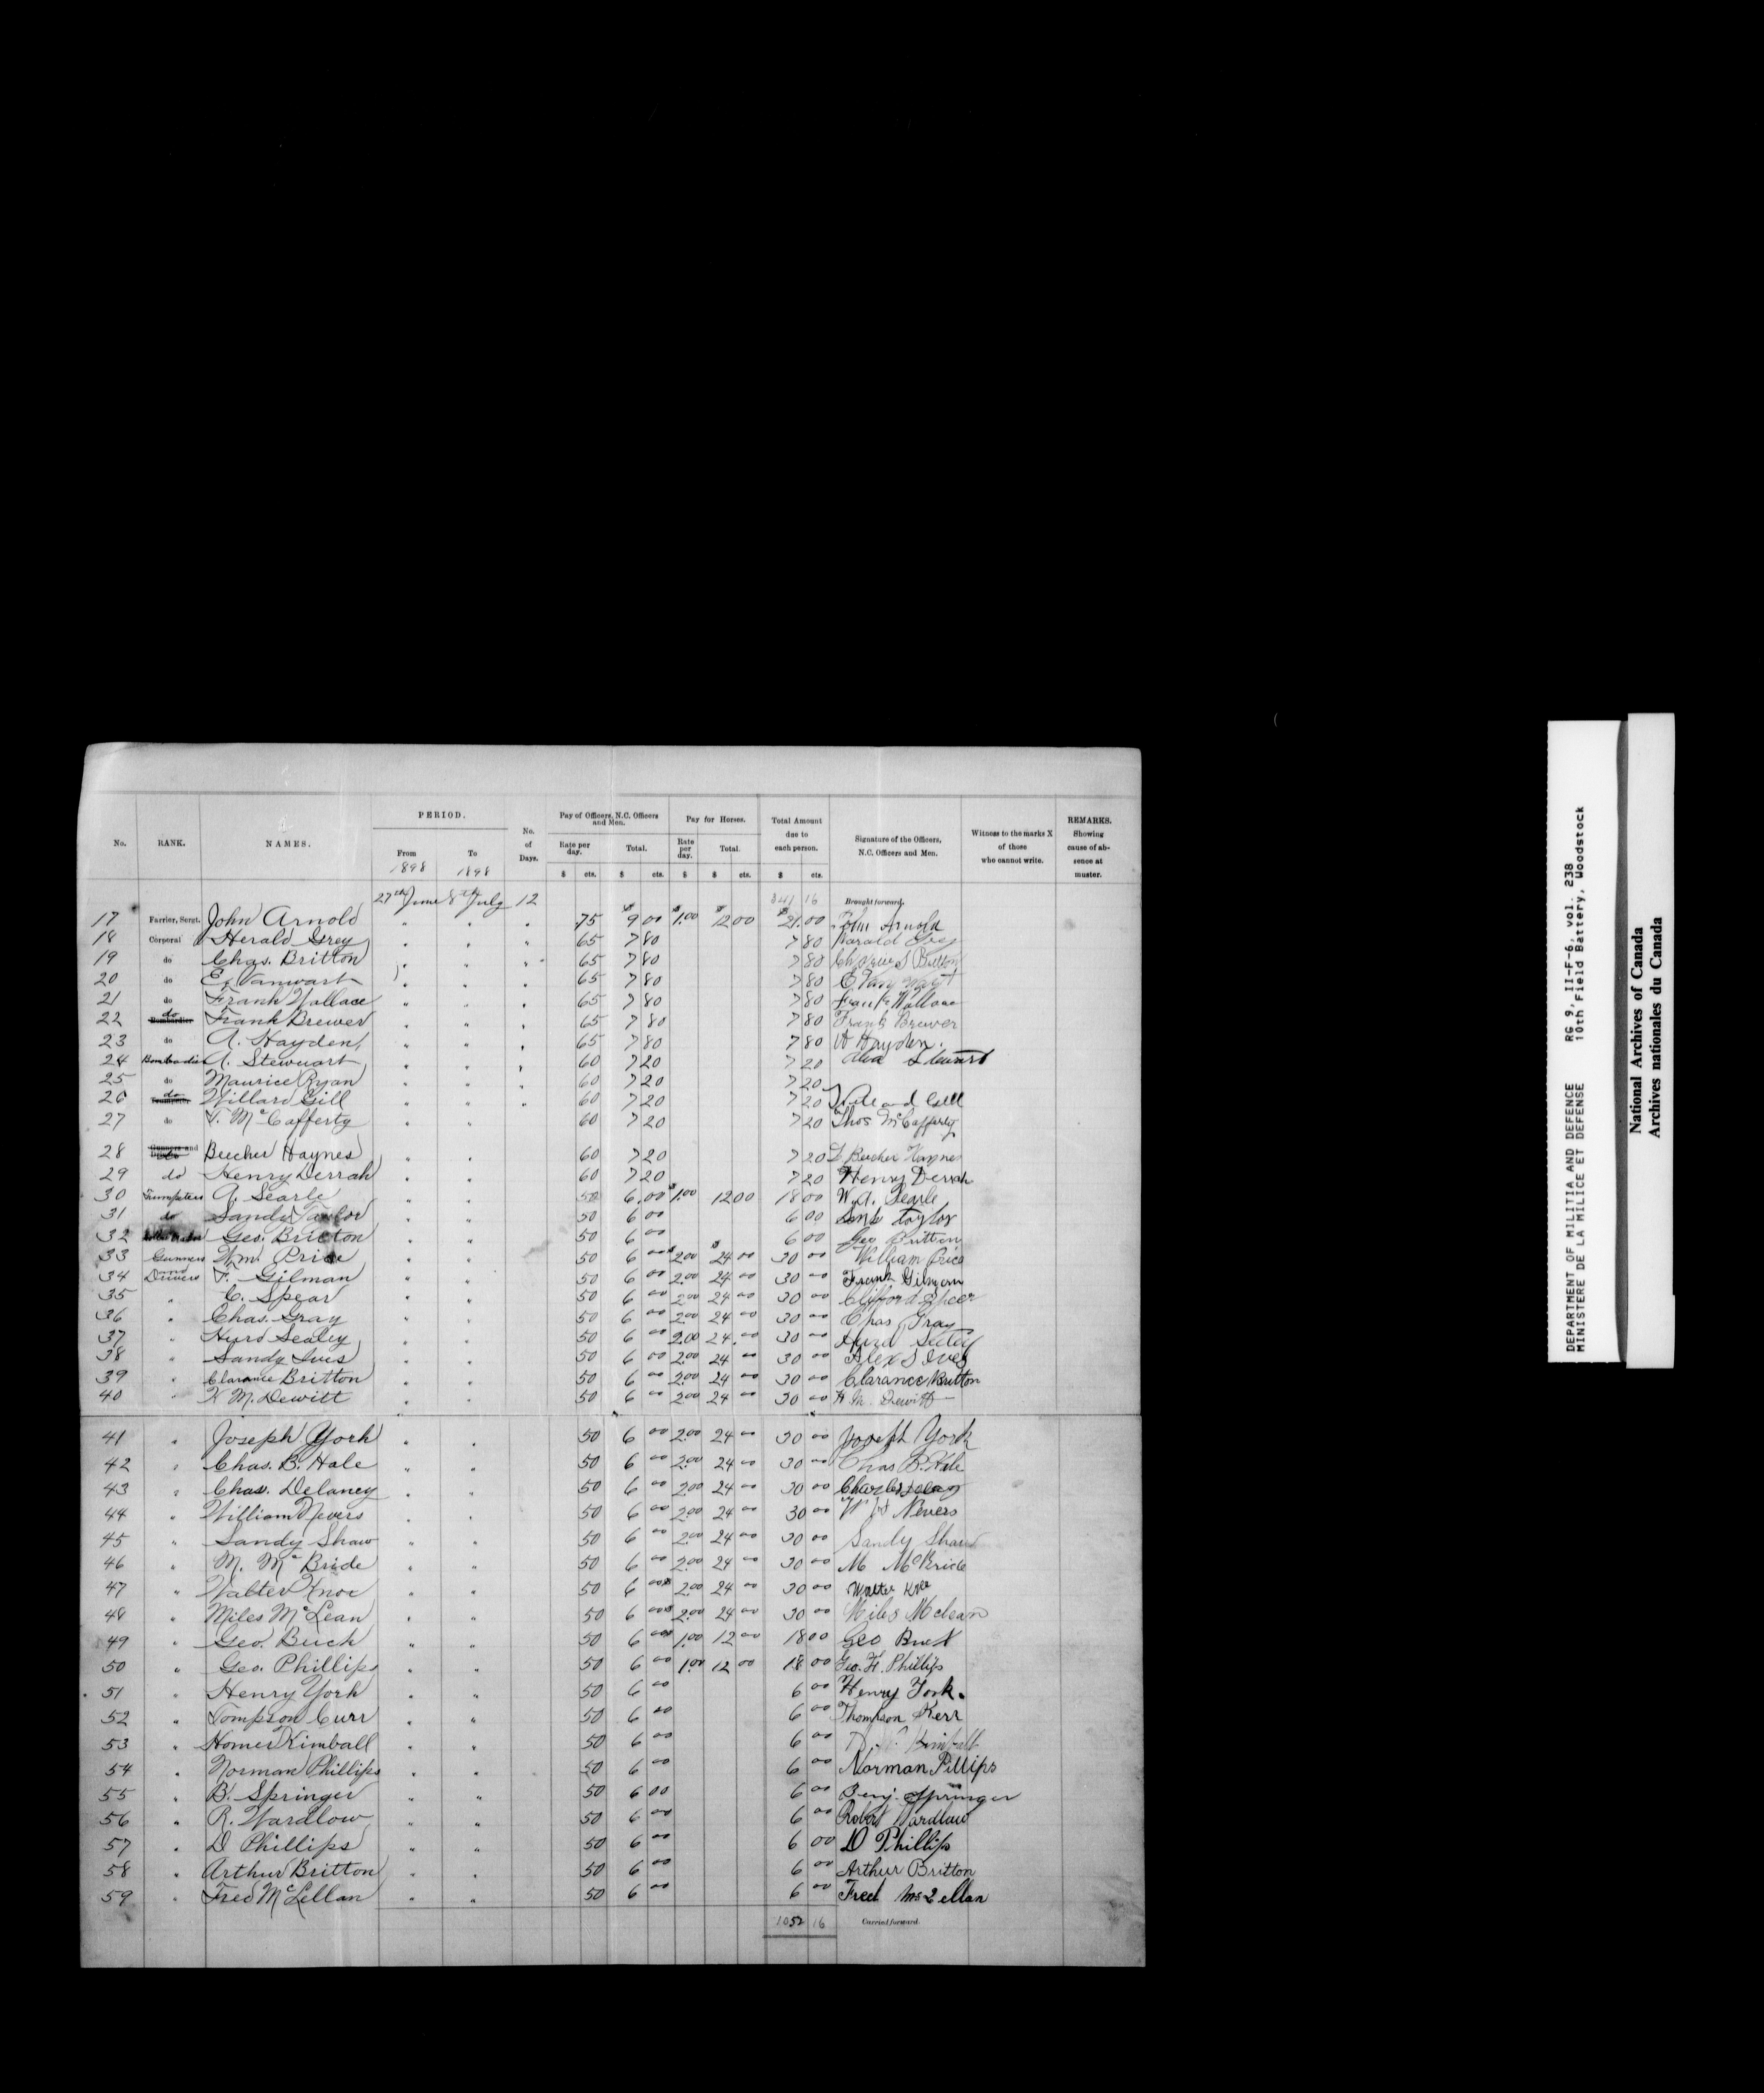 No. RANK. NAMES. PERIOD. From 1898 To 1898 No. of Days. Pay of Officers, N.C. Officers and Men. Rate per day. $ cts. Total. $ cts. Pay for Horses. Rate per day. $ Total. $ cts. Total Amount due to each person. $ cts. Signature of the Officers, N.C. Officers and Men. Witness to the marks X of those who cannot write. REMARKS. Showing cause of absence at muster.
27th June 8th July 12 341 16 Brought forward.
17 Farrier, Sergt. John Arnold " " " 75 9 00 1.00 12 00 21.00 John Arnold
18 Corporal Herald Grey " " " 65 7 80 7 80 Harald Grey
19 do Chas. Britton " " " 65 7 80 7 80 Charles S Britton
20 do E. Vanwart " " " 65 7 80 7 80 E Vanwart
21 do Frank Wallace " " " 65 7 80 7 80 Frank Wallace
22 do Frank Brewer " " " 65 7 80 7 80 Frank Brewer
23 do A. Hayden " " " 65 7 80 7 80 A Hayden.
24 Bombadier A. Stewuart " " " 60 7 20 7 20 Stewart
25 do Maurice Ryan " " " 60 7 20 7 20
26 do Willard Gill " " " 60 7 20 7 20 Gill
27 do T. McCafferty 60 7 20 7 20 Thos McCafferty
28 Beecher Haynes " " 60 7 20 7 20 Beecher Haynes
29 do Henry Derrah " " 60 7 20 7 20 Henry Derrah
30 Trumpeters A. Searle " " 50 6.00 1.00 12 00 18 00 W. A. Searle
31 do Sandy Taylor " " 50 6 00 6 00 Taylor
32 Geo. Britton " " 50 6 00 6 00 Geo Britton
33 Gunners Wm. Price " " 50 6 00 2.00 24 00 30 00 William Price
34 and Drivers F. Gilman " " 50 6 00 2.00 24 00 30 00 Frank Gilman
35 " C. Spear " " 50 6 00 2.00 24 00 30 00 Clifford Speer
36 " Chas. Gray " " 50 6 00 2.00 24 00 30 00 Chas Gray
37 " Hurd Sealey " " 50 6 00 2.00 24.00 30 00 Hurd
38 " Sandy Ives " " 50 6 00 2.00 24 00 30 00 Alex S Ives
39 " Clarance Britton " " 50 6 00 2.00 24 00 30 00 Clarance Britton
40 " H M. Dewitt " " 50 6 00 2.00 24 00 30 00 H M. Dewitt
41 " Joseph York " " 50 6 00 2.00 24 00 30 00 Joseph York
42 " Chas. B. Hale " " 50 6 00 2.00 24 00 30 00 Chas B. Hale
43 " Chas. Delaney " " 50 6 00 2.00 24 00 30 00 Charles
44 " William Nevers " " 50 6 00 2.00 24 00 30 00 Nevers
45 " Sandy Shaw " " 50 6 00 2.00 24 00 30 00 Sandy Shaw
46 " M. McBride " " 50 6 00 2.00 24 00 30 00 M McBride
47 " Walter Knoe " " 50 6 00 2.00 24 00 30 00 Walter
48 " Miles McLean " " 50 6 00 2.00 24 00 30 00 Miles Mclean
49 " Geo. Buck " " 50 6 00 1.00 12 00 18 00 Geo
50 " Geo. Phillips " " 50 6 00 1.00 12 00 18 00 Geo. H. Phillips
51 " Henry York " " 50 6 00 6 00 Henry York.
52 " Tompson Curr " " 50 6 00 6 00 Thompson Kerr
53 " Homer Kimball " " 50 6 00 6 00 Kimball
54 " Norman Phillips " " 50 6 00 6 00 Norman Pillips
55 " B. Springer " " 50 6 00 6 00 Benj. Springer
56 " R. Wardlow " " 50 6 00 6 00 Robert Wardlaw
57 " D Phillips " " 50 6 00 6 00 D Phillips
58 " Arthur Britton " " 50 6 00 6 00 Arthur Britton
59 " Fred McLellan " " 50 6 00 6 00 Fred McLellan
1052 16 Carried forward.
DEPARTMENT OF MILITIA AND DEFENCE RG 9, II-F-6, vol. 238
MINISTERE DE LA MILICE ET DEFENSE 10th Field Battery, Woodstock
National Archives of Canada
Archives nationales du Canada